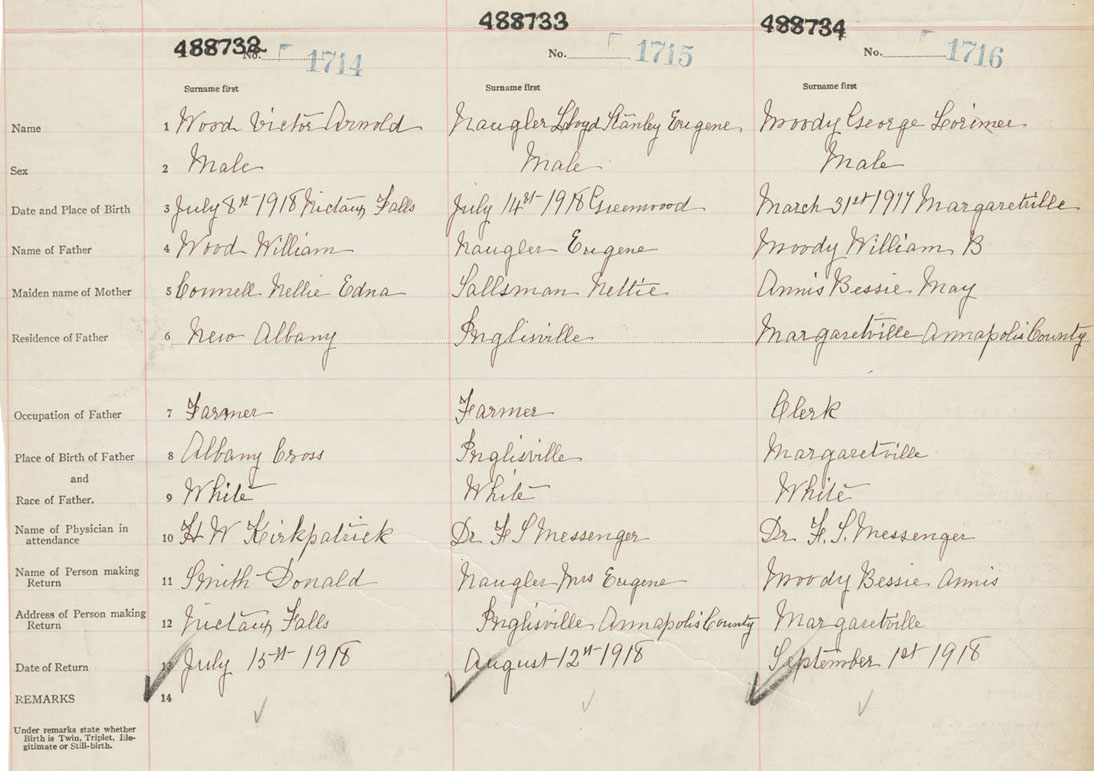 488732 488733 488734
No. 1714 No. 1715 No. 1716
Surname first Surname first Surname first
Name 1 Wood Victor Arnold Naugler Lloyd Stanley Eugene Moody George Lorimer
Sex 2 Male Male Male
Date and Place of Birth 3 July 8st 1918 Nictaux Falls July 14st 1918 Greenwood March 31st 1917 Margaretville
Name of Father 4 Wood William Naugler Eugene Moody William B
Maiden name of Mother 5 Connell Nellie Edna Sallsman Nettie Annis Bessie May
Residence of Father 6 New Albany Inglisville Margaretville Annapolis County
Occupation of Father 7 Farmer Farmer Clerk
Place of Birth of Father 8 Albany Cross Inglisville Margaretville
and
Race of Father. 9 White White White
Name of Physician in
attendance 10 H W Kirkpatrick Dr F S Messenger Dr F. S. Messenger
Name of Person making
Return 11 Smith Donald Naugler Mrs Eugene Moody Bessie Annis
Address of Person making
Return 12 Nictaux Falls Inglisville Annapolis County Margaretville
Date of Return 13 July 15st 1918 August 12st 1918 September 1st 1918
REMARKS 14
Under remarks state whether
Birth is Twin, Triplet, Ille-
gitimate or Still-birth.